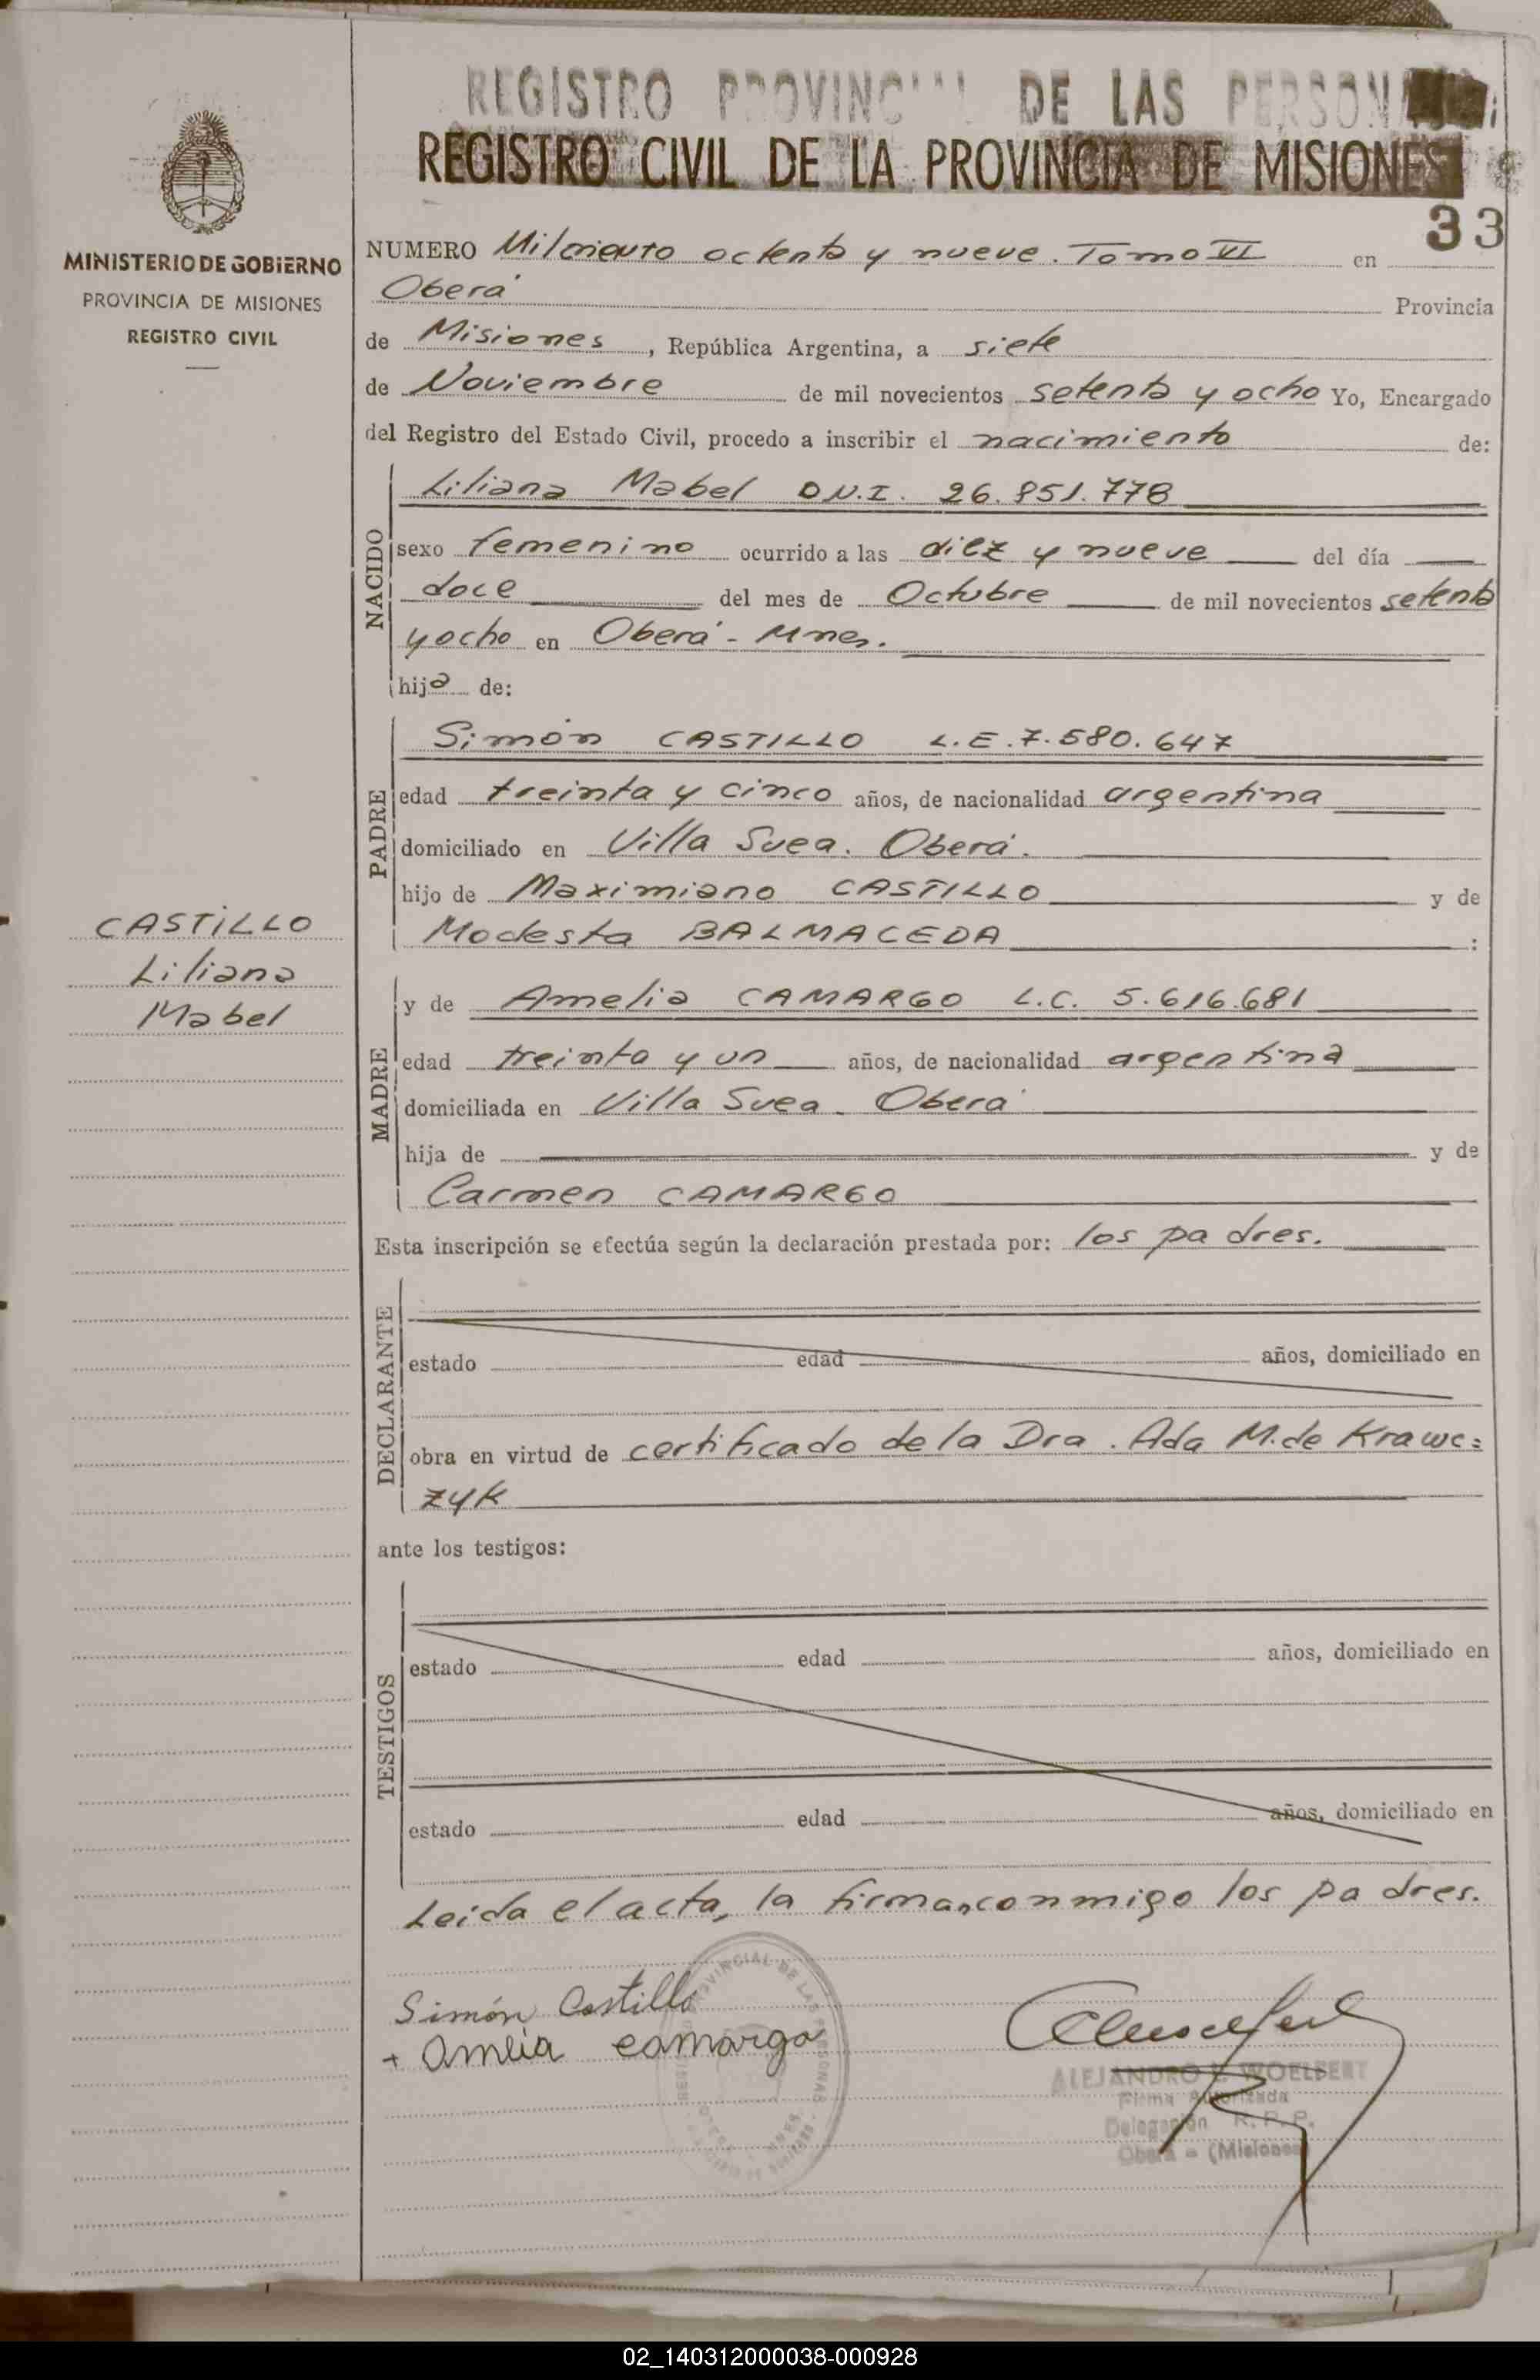 REGISTRO PROVINCIAL DE LAS PERSONAS
REGISTRO CIVIL DE LA PROVINCIA DE MISIONES
33
MINISTERIO DE GOBIERNO
PROVINCIA DE MISIONES
REGISTRO CIVIL
NUMERO Milciento octenta y nueve. Tomo VI en
Oberá Provincia
de Misiones, República Argentina, a siete
de Noviembre de mil novecientos setenta y ocho Yo, Encargado
del Registro del Estado Civil, procedo a inscribir el nacimiento de:
NACIDO
Liliana Mabel D.N.I. 26.851.778
sexo femenino ocurrido a las diez y nueve del día
doce del mes de Octubre de mil novecientos setenta
y ocho en Oberá - Mnes.
hija de:
PADRE
Simón CASTILLO L.E. 7.580.647
edad treinta y cinco años, de nacionalidad argentina
domiciliado en Villa Svea. Oberá.
hijo de Maximiano CASTILLO y de
Modesta BALMACEDA :
CASTILLO
Liliana
Mabel
MADRE
y de Amelia CAMARGO L.C. 5.616.681
edad treinta y un años, de nacionalidad argentina
domiciliada en Villa Svea. Oberá
hija de y de
Carmen CAMARGO
Esta inscripción se efectúa según la declaración prestada por: los padres.
DECLARANTE
estado edad años, domiciliado en
obra en virtud de certificado de la Dra. Ada M. de Krawc=
zyk
ante los testigos:
TESTIGOS
estado edad años, domiciliado en
estado edad años, domiciliado en
Leida el acta, la firman conmigo los padres.
Simón Castillo
+ Amelia camargo
PROVINCIAL DE LAS PERSONAS
ALEJANDRO E. WOELFERT
Firma Autorizada
Delegación R.P.P.
Oberá - (Misiones)
02_140312000038-000928